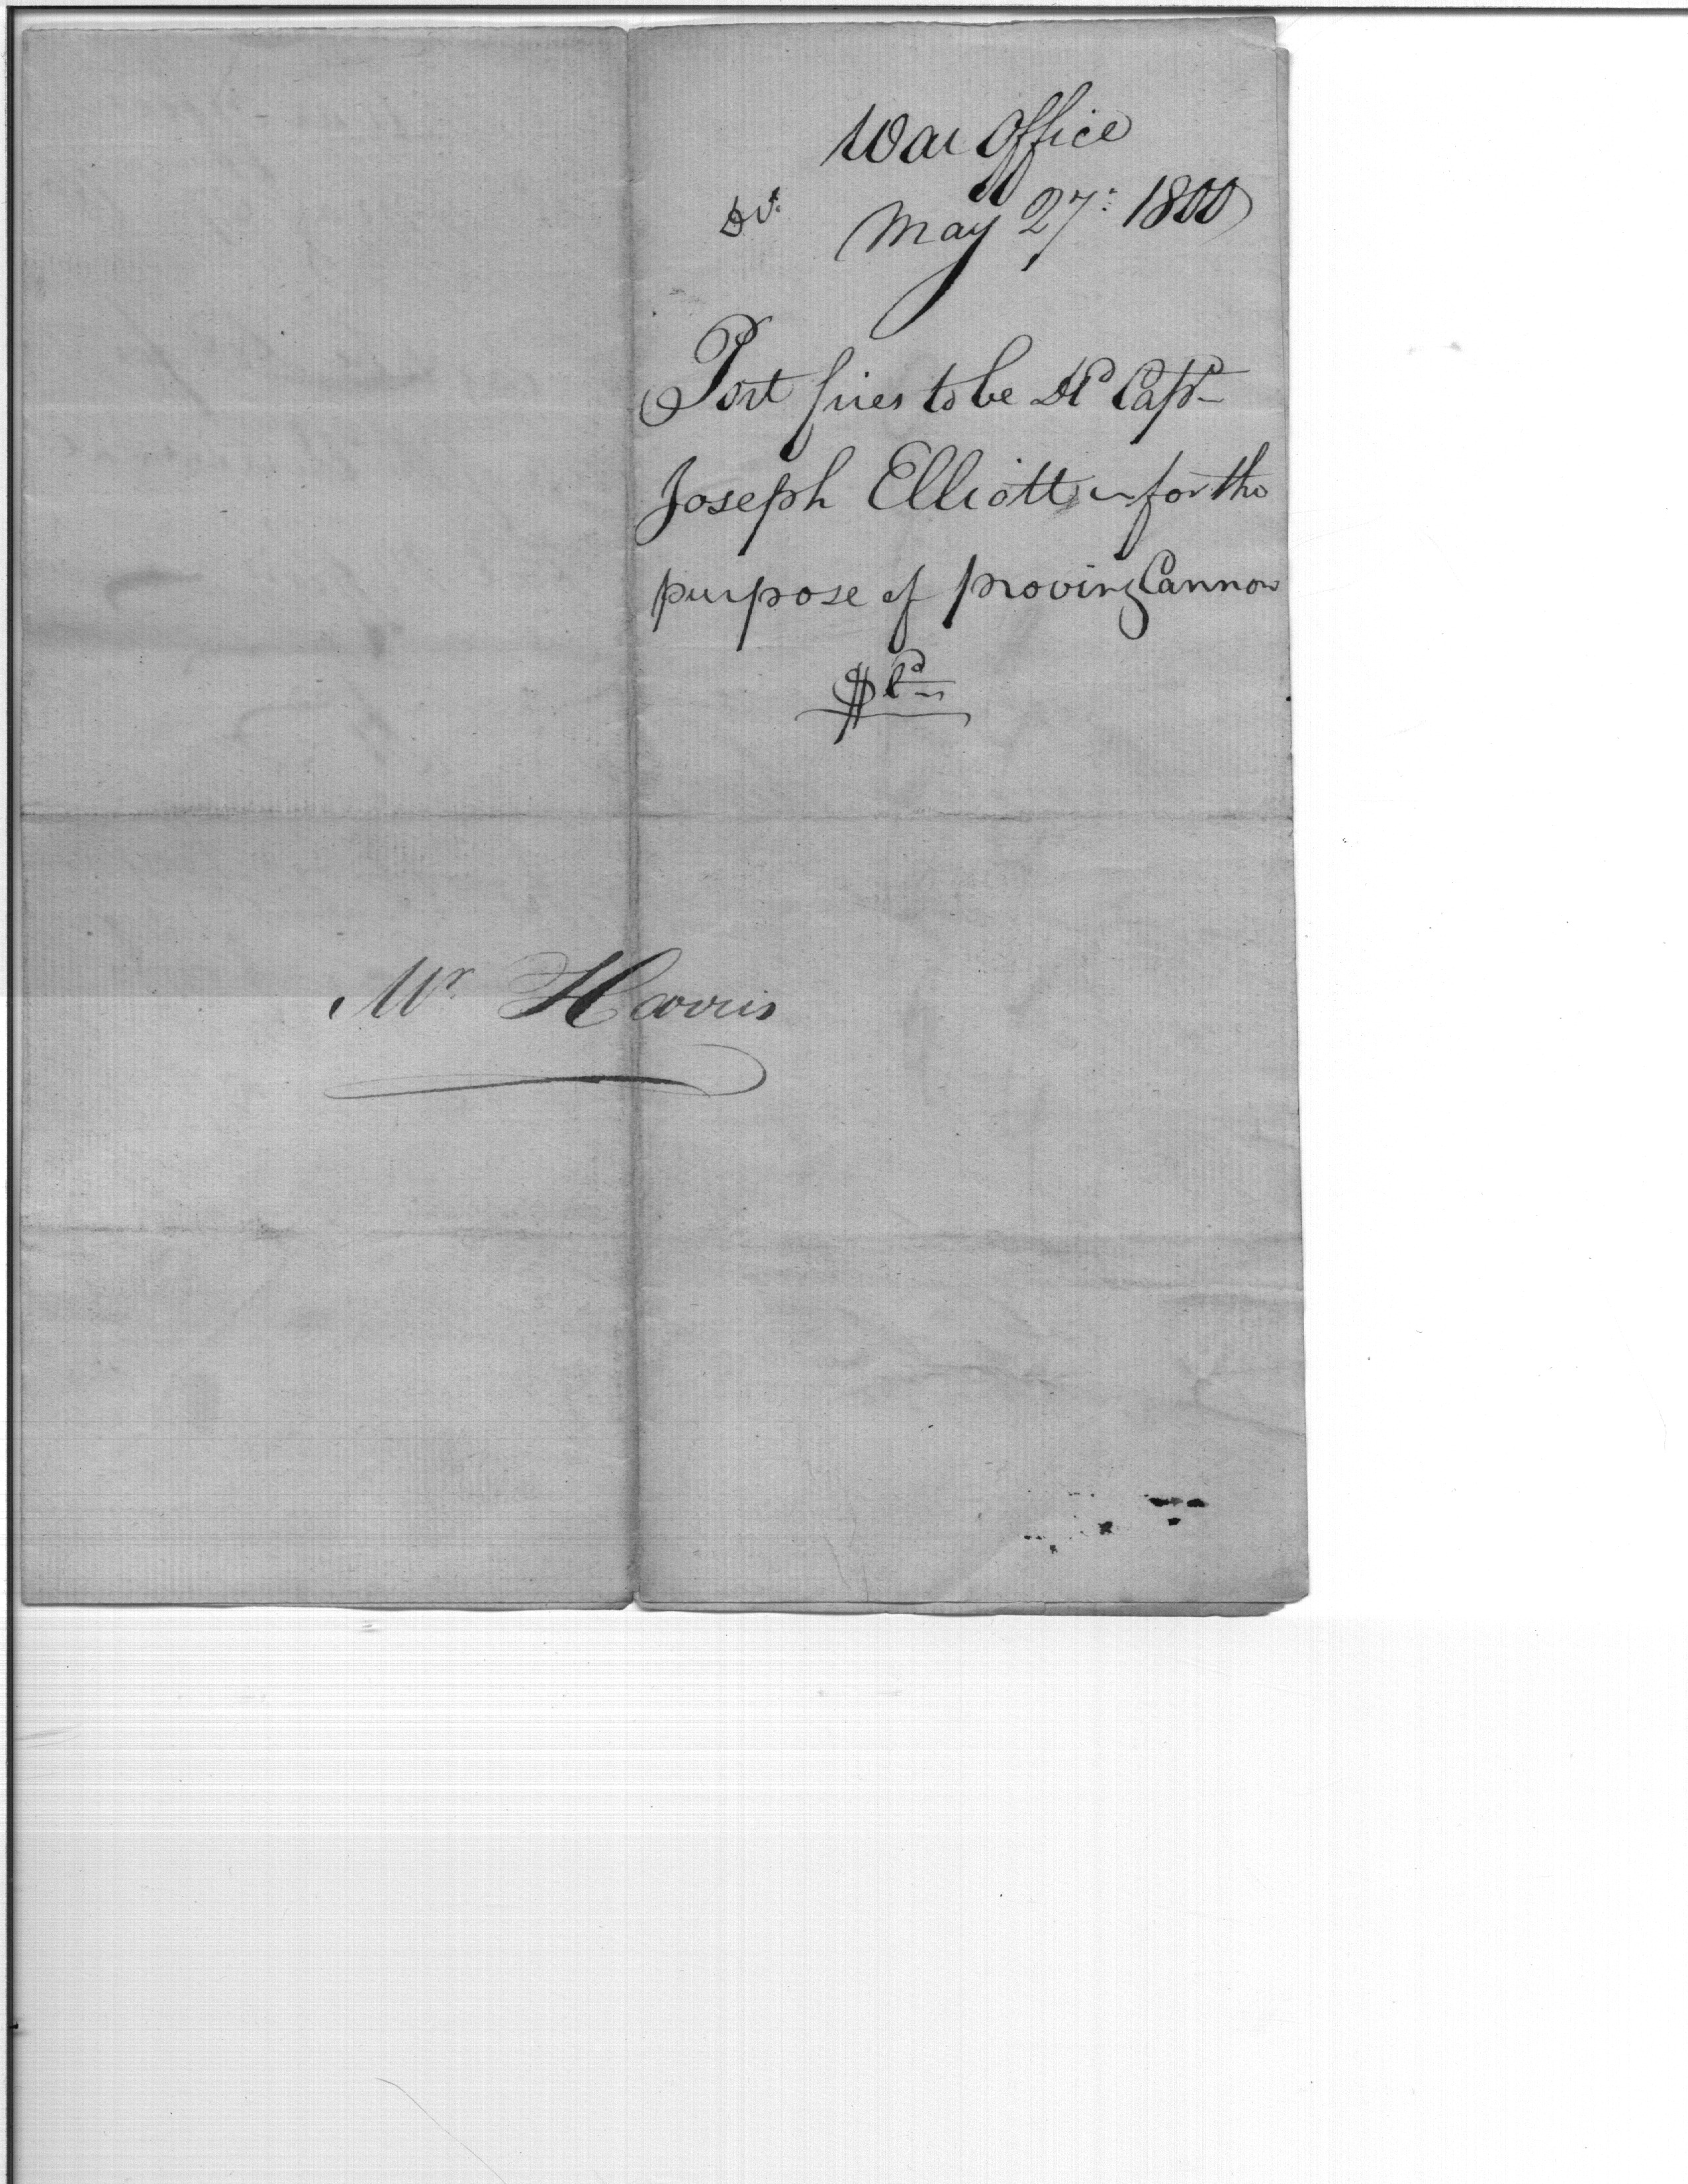 War Office
May 27: 1800
Port fires to be Dd Capt
Joseph Elliott for the
purpose of proving Cannon
Mr Harris